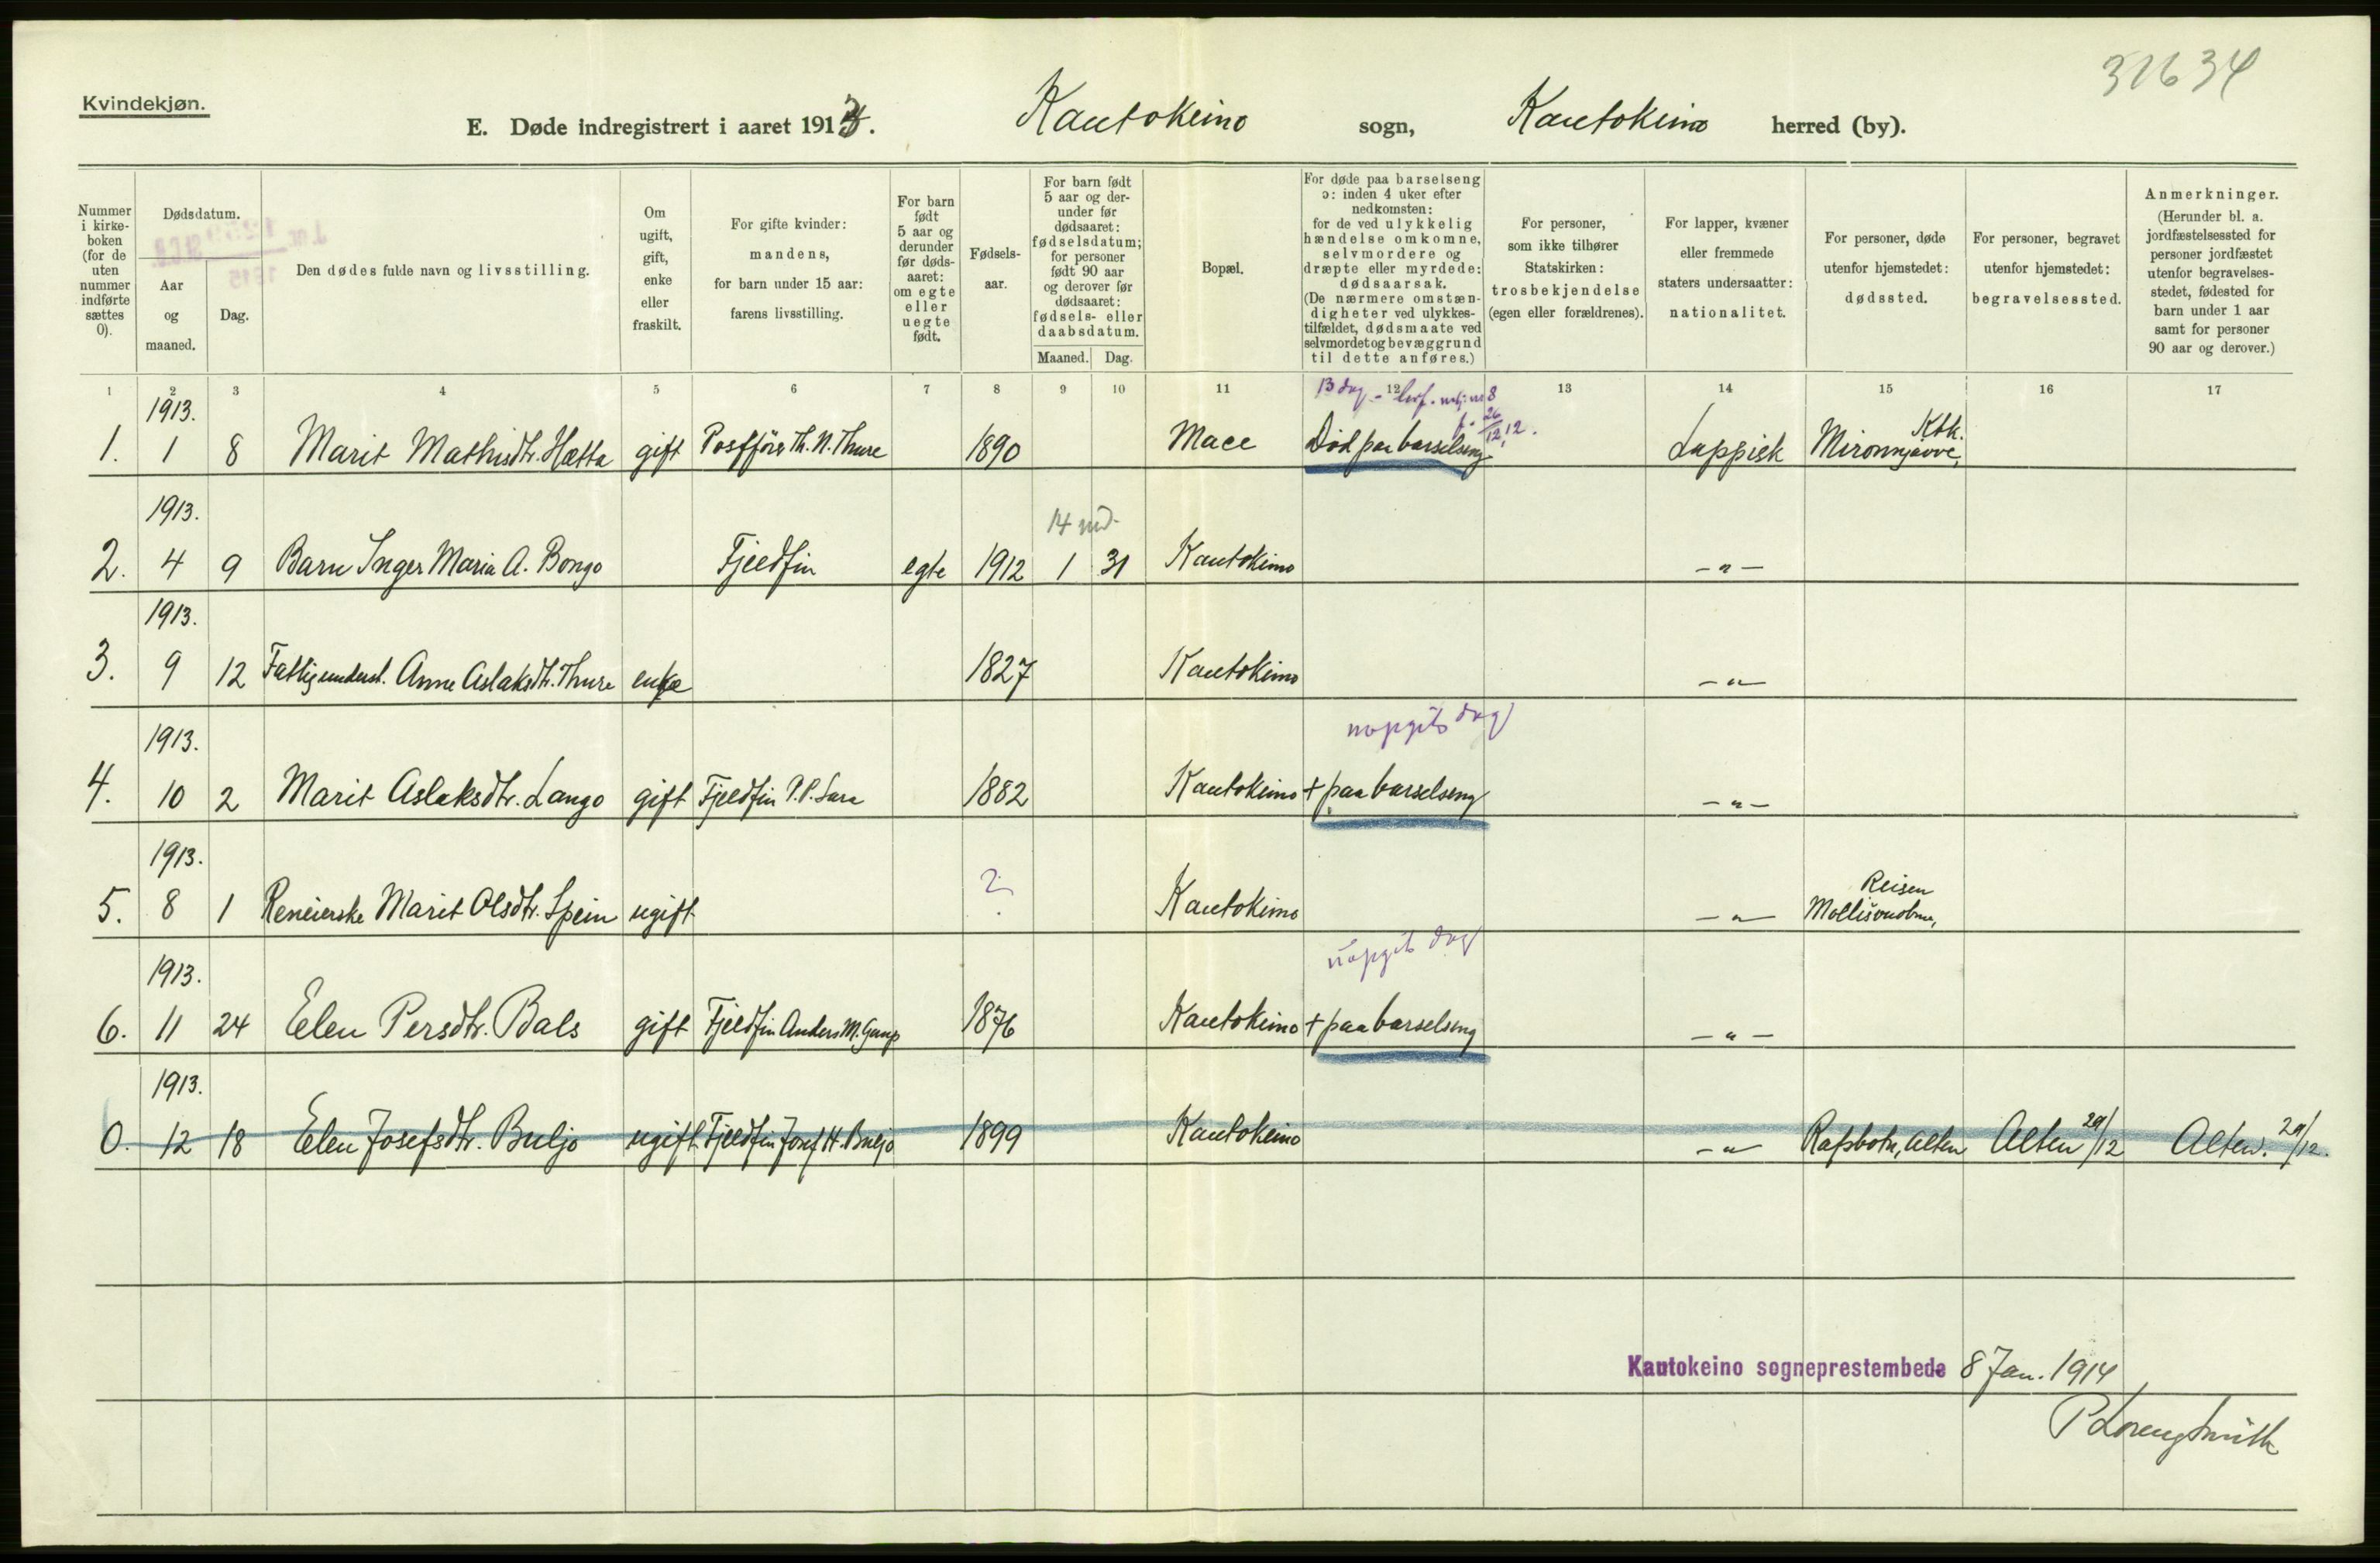 31634
Kvindekjøn.
E. Døde indregistrert i aaret 1913. Kautokeino sogn, Kautokeino herred (by).
Nummer i kirkeboken (for de uten nummer indførte sættes 0).
Dødsdatum.
Aar og maaned.
Dag.
Den dødes fulde navn og livsstilling.
Om ugift, gift, enke eller fraskilt.
For gifte kvinder: mandens, for barn under 15 aar: farens livsstilling.
For barn født 5 aar og derunder før dødsaaret: om egte eller uegte født.
Fødselsaar.
For barn født 5 aar og derunder før dødsaaret: fødselsdatum; for personer født 90 aar og derover før dødsaaret: fødsels- eller daabsdatum.
Maaned. Dag.
Bopæl.
For døde paa barselseng ɔ: inden 4 uker efter nedkomsten: for de ved ulykkelig hændelse omkomne, selvmordere og dræpte eller myrdede: dødsaarsak. (De nærmere omstændigheter ved ulykkestilfældet, dødsmaate ved selvmordet og bevæggrund til dette anføres.)
For personer, som ikke tilhører Statskirken: trosbekjendelse (egen eller forældrenes).
For lapper, kvæner eller fremmede staters undersaatter: nationalitet.
For personer, døde utenfor hjemstedet: dødssted.
For personer, begravet utenfor hjemstedet: begravelsessted.
Anmerkninger. (Herunder bl. a. jordfæstelsessted for personer jordfæstet utenfor begravelsesstedet, fødested for barn under 1 aar samt for personer 90 aar og derover.)
1 2 3 4 5 6 7 8 9 10 11 12 13 14 15 16 17
1913. 13 dag 8
26/12 12. Ktk.
1. 1 8 Marit Mathisdtr. Hætta gift Postfører Th. N. Thure 1890 Mace Død paa barselseng Lappisk Mironnjavve,
1913. 14 md.
2. 4 9 Barn Inger Maria A. Bongo Fjeldfin egte 1912 1 31 Kautokeino -"-
1913.
3. 9 12 Fattigunderst. Anne Aslaksdtr. Thure enke 1827 Kautokeino -"-
1913. uopgit dag
4. 10 2 Marit Aslaksdtr. Lango gift Fjeldfin P. P. Sara 1882 Kautokeino + paa barselseng -"-
1913. Reisen
5. 8 1 Reneierske Marit Olsdtr. Spein ugift ? Kautokeino -"-
1913. uopgit dag
6. 11 24 Elen Persdtr. Bals gift Fjeldfin Anders M. Gaup 1876 Kautokeino + paa barselseng -"-
1913.
0. 12 18 Elen Josefsdtr. Buljo ugift Fjeldfin Josef H. Buljo 1899 Kautokeino -"- Rafsbotn, Alten Alten 29/12 Alten. 29/12.
Kautokeino sogneprestembede 8 Jan. 1914
P Lorenz Smith